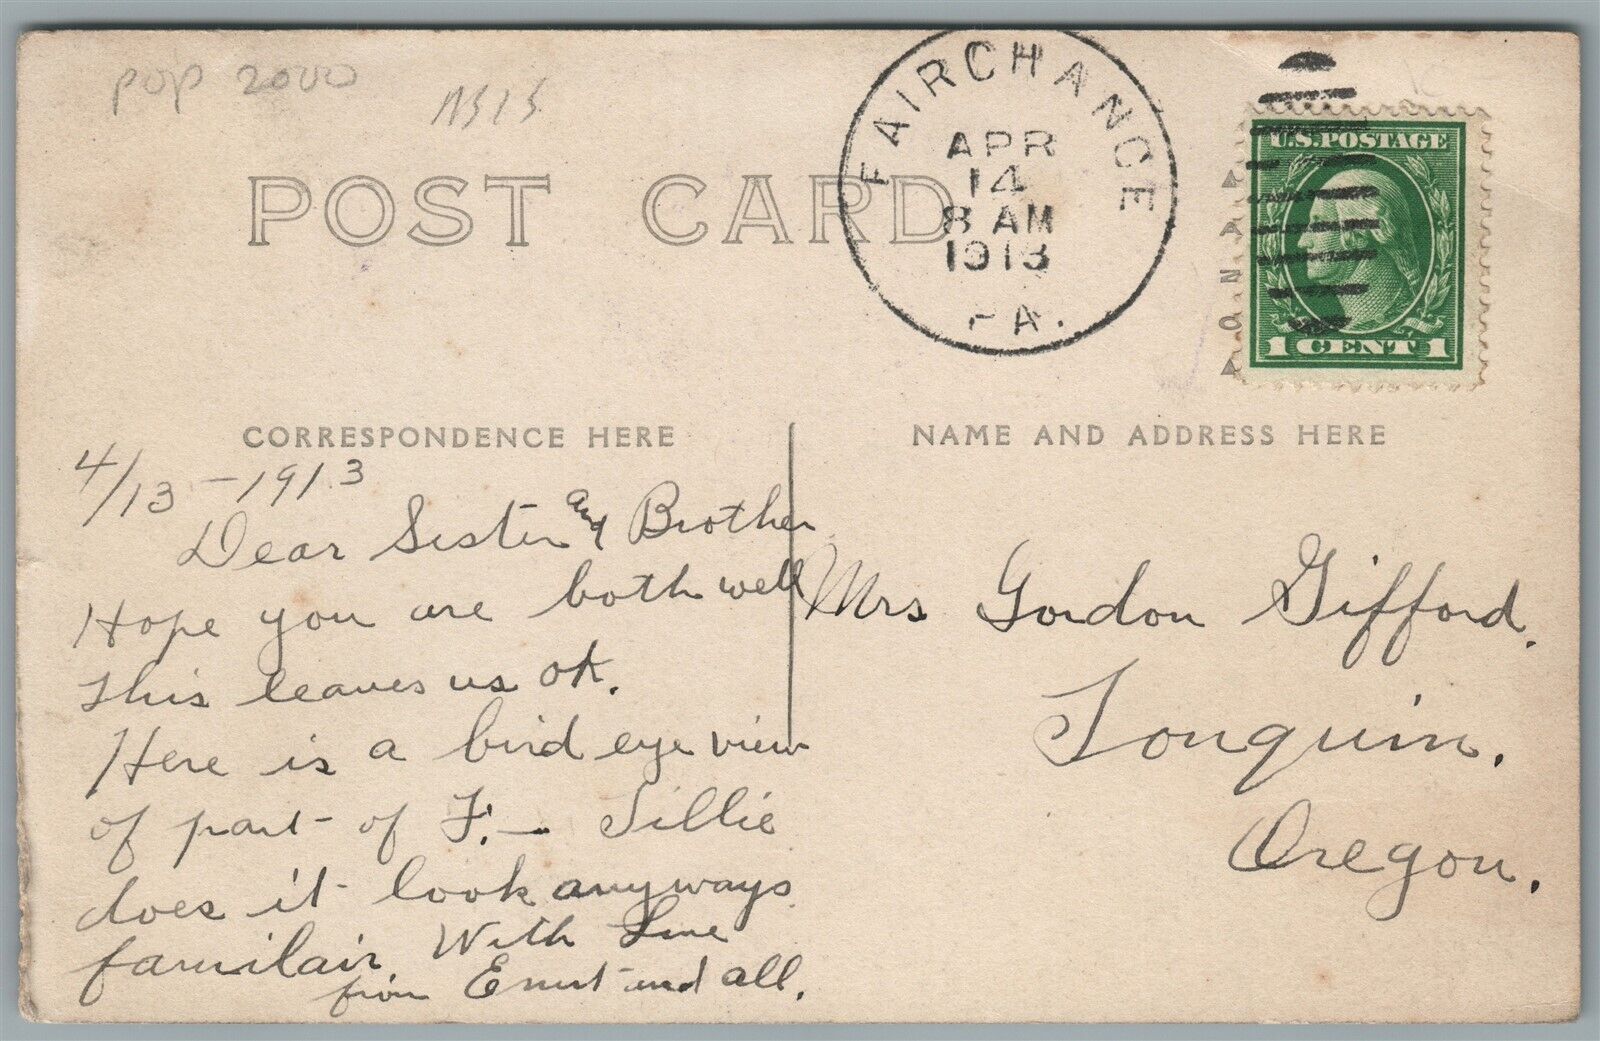 pop 2000
POST CARD
FAIRCHANCE
APR
14
8 AM
1913
PA.
U.S. POSTAGE
1 CENT 1
CORRESPONDENCE HERE
NAME AND ADDRESS HERE
4/13-1913
Dear Sister and Brother
Hope you are both well
This leaves us OK.
Here is a bird eye view
of part of F. — Tillie
does it look anyways
familair. With Love
from Ernst and all.
Mrs Gordon Gifford.
Tonquin.
Oregon.